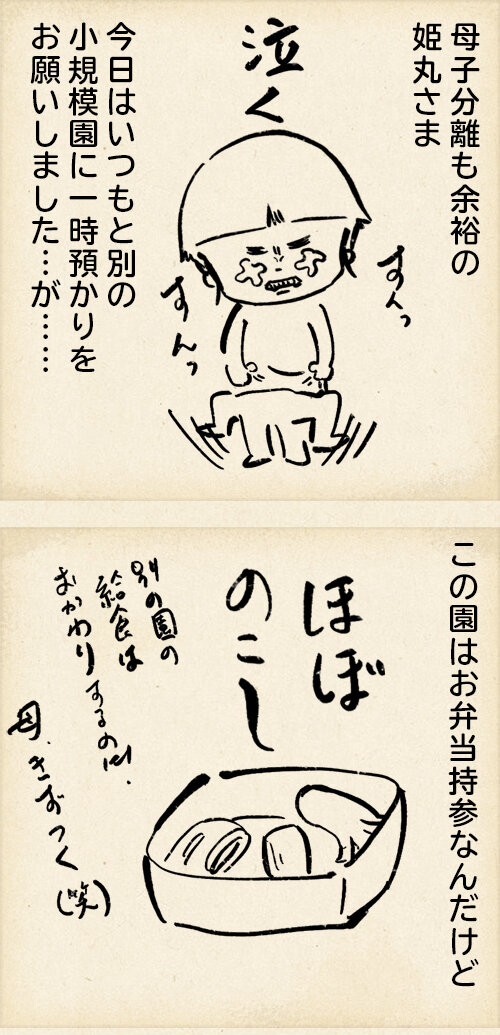 母子分離も余裕の
姫丸さま
泣く
すんっ
すんっ
今日はいつもと別の
小規模園に一時預かりを
お願いしました…が……
この園はお弁当持参なんだけど
ほぼ
のこし
別の園の
給食は
おかわりするのに、
母、きずつく
(笑)